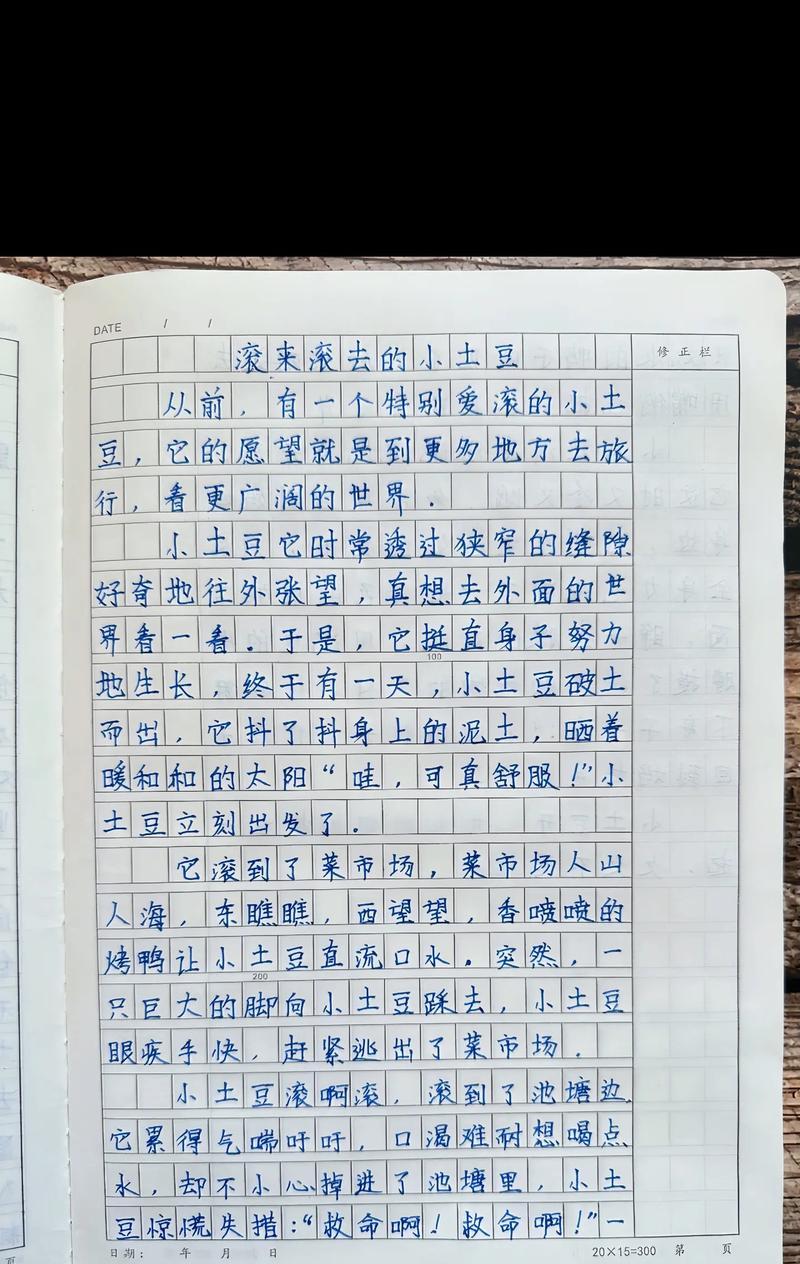 DATE / /
滚来滚去的小土豆
修正栏
从前，有一个特别爱滚的小土
豆，它的愿望就是到更多地方去旅
行，看更广阔的世界.
小土豆它时常透过狭窄的缝隙
好奇地往外张望，真想去外面的世
界看一看.于是，它挺直身子努力
100
地生长，终于有一天，小土豆破土
而出，它抖了抖身上的泥土，晒着
暖和和的太阳“哇，可真舒服！”小
土豆立刻出发了。
它滚到了菜市场，菜市场人山
人海，东瞧瞧，西望望，香喷喷的
烤鸭让小土豆直流口水。突然，一
200
只巨大的脚向小土豆踩去，小土豆
眼疾手快，赶紧逃出了菜市场.
小土豆滚啊滚，滚到了池塘边.
它累得气喘吁吁，口渴难耐想喝点
水，却不小心掉进了池塘里，小土
豆惊慌失措：“救命啊！救命啊！”一
日期： 年 月 日 20×15=300 第 页
页